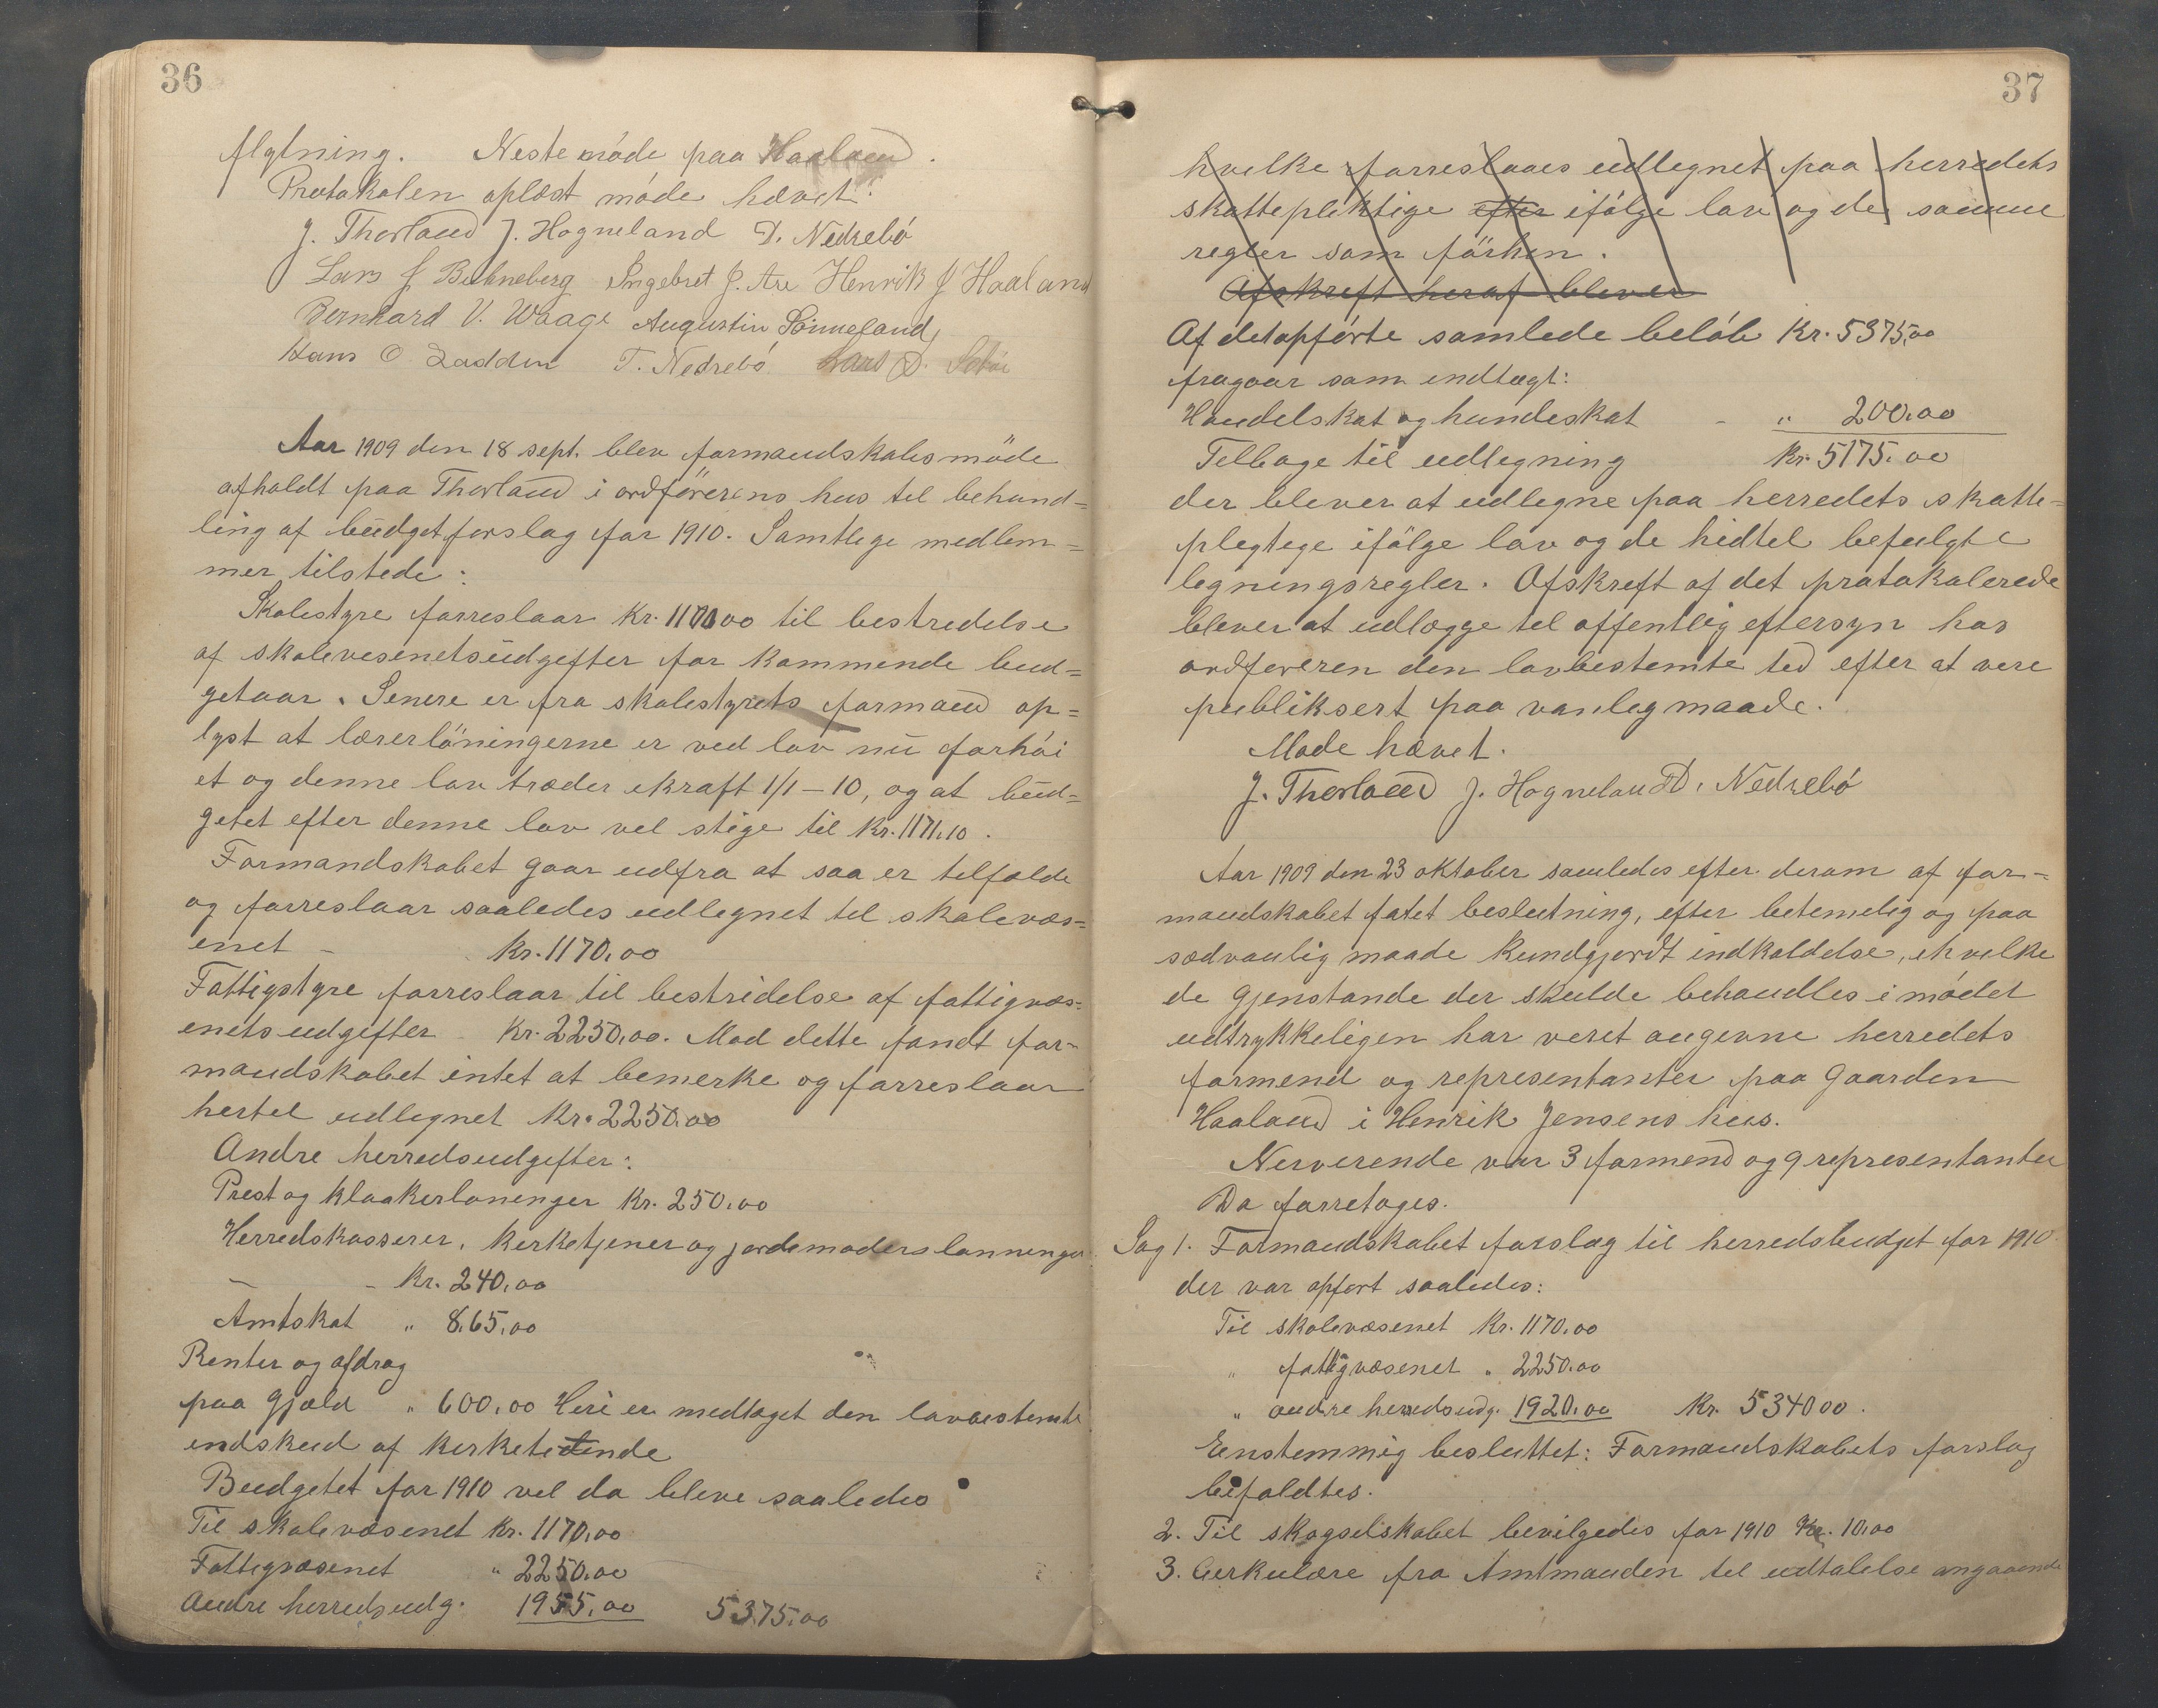 36
flytning. Neste møde paa Haaland.
Protokolen oplæst møde hævet.
J. Thorland J. Hogneland D. Nedrebö
Lars J Ingebret J. Are Henrik J Haaland
Bernhard V. Waage Augustin Sönneland,
Hans O. Ladden T. Nedrebö Lars D.
Aar 1909 den 18 sept. blev formandskabsmöde
afholdt paa Thorland i ordförerens hus til behand=
ling af budgetforslag for 1910. Samtlege medlem=
mer tilstede:
Skolestyre forreslaar Kr. 1100.00 til bestredelse
af skolevesenetsudgifter for kommende bud=
getaar. Senere er fra skolestyrets formand op=
lyst at lærerlöningerne er ved lov nu forhöi
et og denne lov træder ikraft 1/1-10, og at bud=
getet efter denne lov vel stige til Kr. 1171.10.
Formandskabet gaar udfra at saa er telfælde
og forreslaar saaledes udlegnet tel skolevæs=
enet - Kr. 1170.00
Fattigstyre forreslaar til bestridelse af fattigvæs=
enetsudgifter - Kr. 2250.00. Mod dette fandt for-
mandskabet intet at bemerke og forreslaar
hertel udlegnet Kr. 2250.00
Andre herredsudgifter:
Prest og klokkerloninger Kr. 250.00
Herredskasserer, kirketjener og jordemoderslonninger
- - Kr. 240.00
Amtskat " 8.65.00
Renter og afdrag
paa gjæld " 600.00 Heri er medtaget den lovbestemte
indskud af kirketiende
Budgetet for 1910 vel da bleve saaledes
Til skolevæsenet Kr. 1170.00
Fattigvæsenet " 2250.00
Andre herredsudg. 1955.00 5375.00
37
hvilke forreslaaes udlegnet paa herredets
skattepliktige efter ifölge lov og de samme
regler som förhen.
Afskreft heraf blever
Af det opförte samlede belöb Kr. 5375.00
fragaar som indtægt:
Handelskat og hundeskat - " 200.00
Telbage til udlegning Kr. 5175.00
der blever at udlegne paa herredets skatte=
plegtege ifölge lov og de hidtel befulgte
legningsregler. Afskreft af det protokolerede
blever at udlægge tel offentlig eftersyn hos
ordføreren den lovbestemte ted efter at vere
publiksert paa vanleg maade.
Møde hævet.
J. Thorland J. Hogneland D. Nedrebö
Aar 1909 den 23 oktober samledes efter derom af for-
mandskabet fatet beslutning, efter betemelig og paa
sædvanlig maade kundgjordt indkaldelse, ihvilke
de gjenstande der skulde behandles i mødet
udtrykkeligen har veret angevne herredets
formend og representanter paa gaarden
Haaland i Henrik Jensens hus.
Nerverende var 3 formend og 9 representanter
Da forretoges.
Sag 1. Formandskabet forslag til herredsbudget for 1910
der var opført saaledes:
Til skolevæsenet Kr. 1170.00
" fattigvæsenet " 2250.00
" andre herredsudg. 1920.00 Kr. 5340 00.
Enstemmig besluttet: Formandskabets forslag
bifaldtes.
2. Til skogselskabet bevilgedes for 1910 Kr. 10.00
3. Cerkulære fra Amtmanden tel udtalelse angaaende